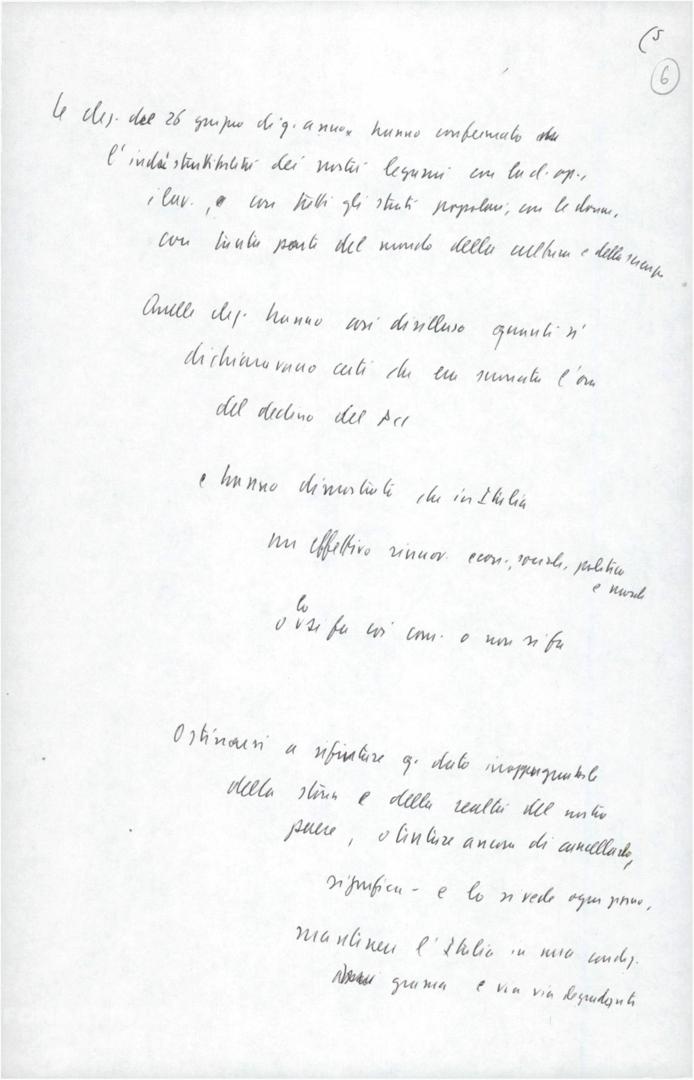 (5
6
Le elez. del 26 giugno di q. anno hanno confermato
l'indistruttibilità dei nostri legami con la cl. op.,
i lav., e con tutti gli strati popolari, con le donne,
con tanta parte del mondo della cultura e della scienza
Quelle elez. hanno così disilluso quanti si
dichiaravano certi che era suonata l'ora
del declino del PCI
e hanno dimostrato che in Italia
un effettivo rinnov. econ., sociale, politico
e morale
o lo si fa coi com. o non si fa
Ostinarsi a rifiutare q. dato inoppugnabile
della storia e della realtà del nostro
paese, o tentare ancora di cancellarlo,
significa - e lo si vede ogni giorno,
mantenere l'Italia in una condiz.
grama e via via degradante